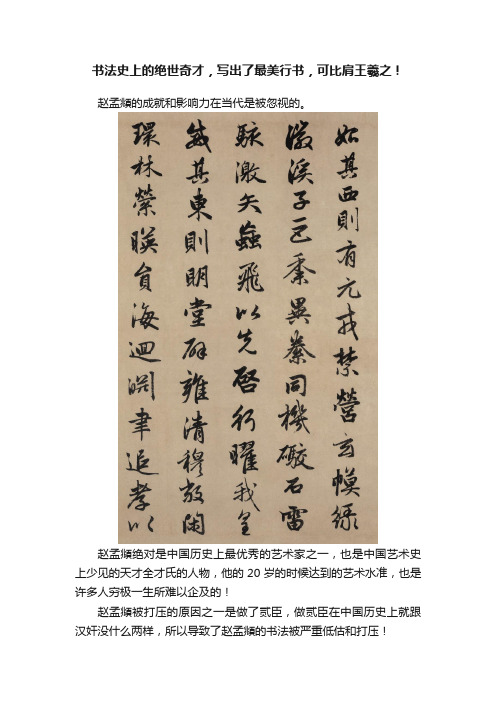 书法史上的绝世奇才，写出了最美行书，可比肩王羲之！
赵孟頫的成就和影响力在当代是被忽视的。
始其西則有元戎禁營玄幙綠
徽溪子巨黍異絭同機礮石雷
駭激矢蝱飛以先啓行曜我皇
威其東則明堂辟雍清穆敞閑
環林縈暎員海迴淵聿追孝以
赵孟頫绝对是中国历史上最优秀的艺术家之一，也是中国艺术史
上少见的天才全才氏的人物，他的 20 岁的时候达到的艺术水准，也是
许多人穷极一生所难以企及的！
赵孟頫被打压的原因之一是做了贰臣，做贰臣在中国历史上就跟
汉奸没什么两样，所以导致了赵孟頫的书法被严重低估和打压！